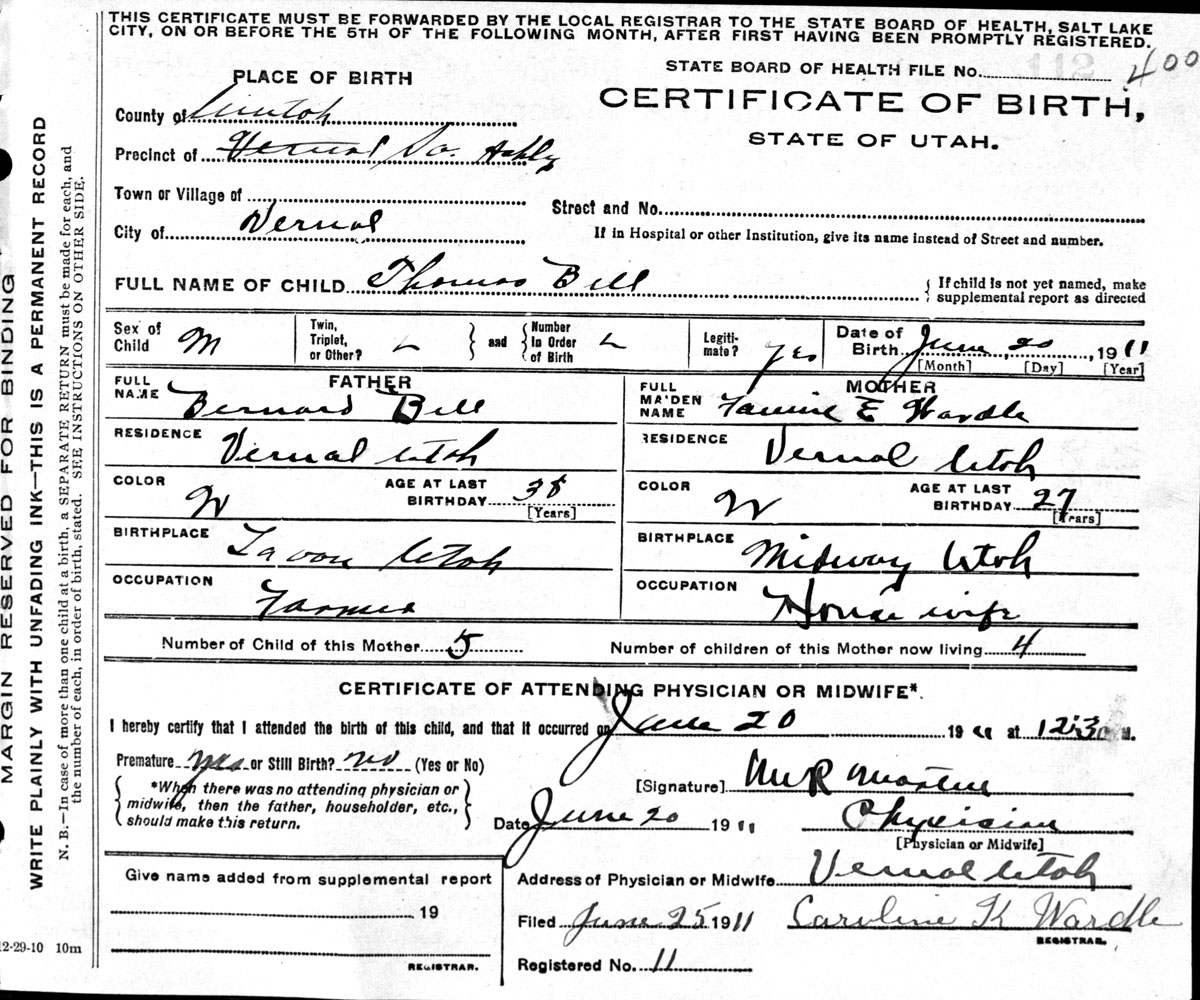 THIS CERTIFICATE MUST BE FORWARDED BY THE LOCAL REGISTRAR TO THE STATE BOARD OF HEALTH, SALT LAKE
CITY, ON OR BEFORE THE 5TH OF THE FOLLOWING MONTH, AFTER FIRST HAVING BEEN PROMPTLY REGISTERED.
STATE BOARD OF HEALTH FILE No. 400
PLACE OF BIRTH
CERTIFICATE OF BIRTH,
STATE OF UTAH.
County of Uintah
Precinct of Vernal So. Ashley
Town or Village of
Street and No.
City of Vernal
If in Hospital or other Institution, give its name instead of Street and number.
FULL NAME OF CHILD Thomas Bell
If child is not yet named, make
supplemental report as directed
Sex of Child M
Twin, Triplet, or Other?
and
Number In Order of Birth
Legiti-mate? yes
Date of Birth June 20, 1911
[Month] [Day] [Year]
FATHER
FULL NAME Bernard Bell
RESIDENCE Vernal Utah
COLOR W
AGE AT LAST BIRTHDAY 38
[Years]
BIRTHPLACE Utah
OCCUPATION Farmer
MOTHER
FULL MAIDEN NAME E Wardle
RESIDENCE Vernal Utah
COLOR W
AGE AT LAST BIRTHDAY 27
[Years]
BIRTHPLACE Midway Utah
OCCUPATION House wife
Number of Child of this Mother 5
Number of children of this Mother now living 4
CERTIFICATE OF ATTENDING PHYSICIAN OR MIDWIFE*.
I hereby certify that I attended the birth of this child, and that it occurred on June 20 1911 at 12:30 M.
Premature yes or Still Birth? no (Yes or No)
*When there was no attending physician or
midwife, then the father, householder, etc.,
should make this return.
[Signature]
Date June 20 1911
Physician
[Physician or Midwife]
Address of Physician or Midwife Vernal Utah
Give name added from supplemental report
19
REGISTRAR.
Filed June 25 1911 Caroline K Wardle
REGISTRAR.
Registered No. 11
12-29-10 10m
MARGIN RESERVED FOR BINDING
WRITE PLAINLY WITH UNFADING INK—THIS IS A PERMANENT RECORD
N. B.—In case of more than one child at a birth, a SEPARATE RETURN must be made for each, and
the number of each, in order of birth, stated. SEE INSTRUCTIONS ON OTHER SIDE.